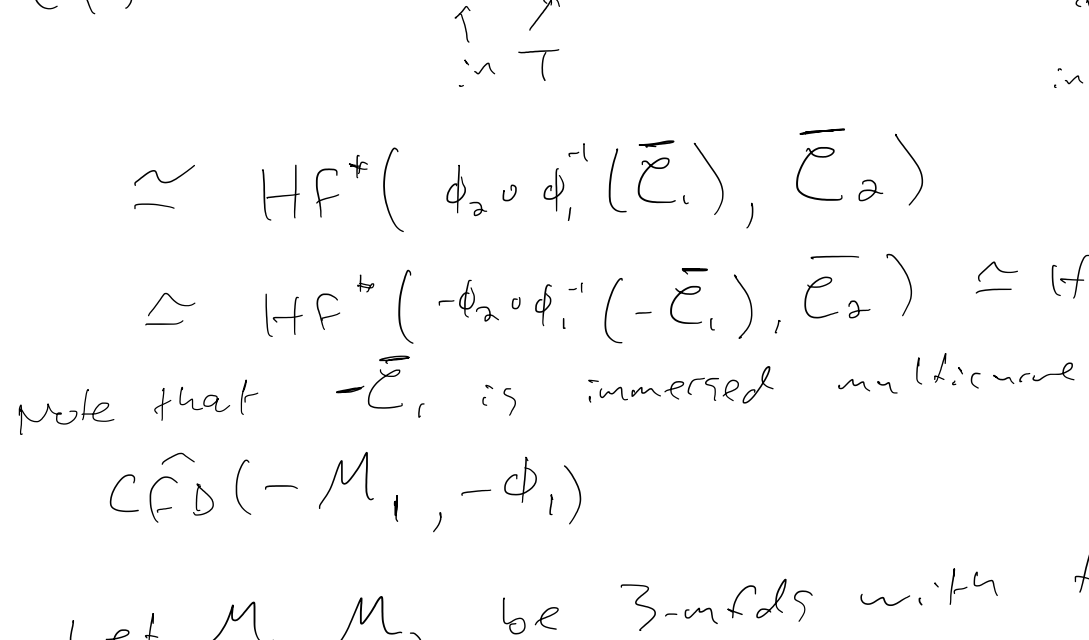 ↑ ↗
in T in
≃ HF*( φ₂ ∘ φ₁⁻¹ (C̄₁), C̄₂ )
≃ HF*( -φ₂ ∘ φ₁⁻¹ (-C̄₁), C̄₂ ) ≃ Hf
Note that -C̄₁ is immersed multicurve
CFD̂(-M₁, -Φ₁)
Let M, M₂ be 3-mfds with